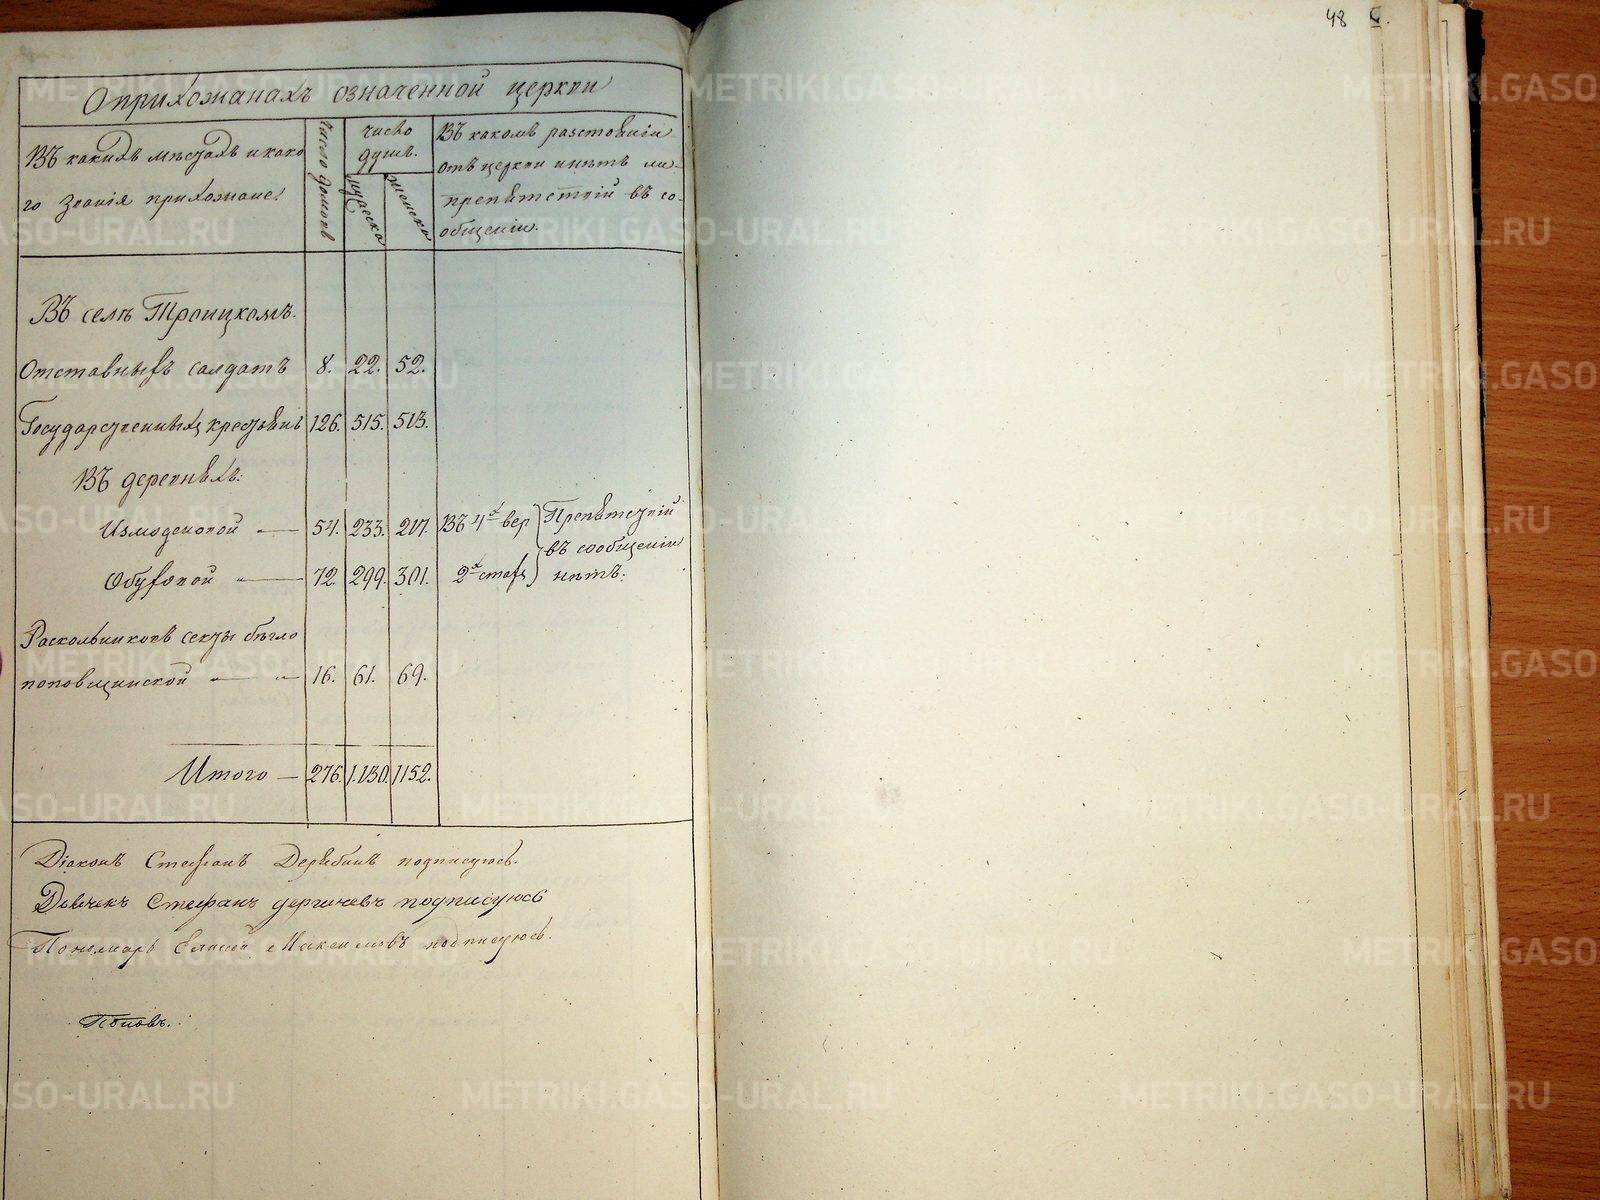 48
О прихожанахъ означенной церкви
Въ какихъ мѣстахъ и како
го званія прихожане.
Число домовъ
число
душъ.
мужеска
женска
Въ какомъ разстояніи
отъ церкви и нѣтъ ли
препятствій въ со
общеніи.
Въ селѣ Троицкомъ.
Отставныхъ солдатъ 8. 22. 52.
Государственныхъ крестьянъ 126. 515. 513.
Въ деревняхъ:
Измоденовой — 54. 233. 217. Въ 4х вер Препятствій
въ сообщеніи
Обуховой " — 72. 299. 301. 2х стахъ нѣтъ.
Раскольниковъ секты бѣгло
поповщинской " " 16. 61. 69.
Итого — 276. 1.130. 1152.
Діаконъ Стефанъ Дерябинъ подписуюсь.
Дьячекъ Стефанъ подписуюсь
Пономарь Елисей Максимовъ подписуюсь.
Поповъ.
METRIKI.GASO-URAL.RU